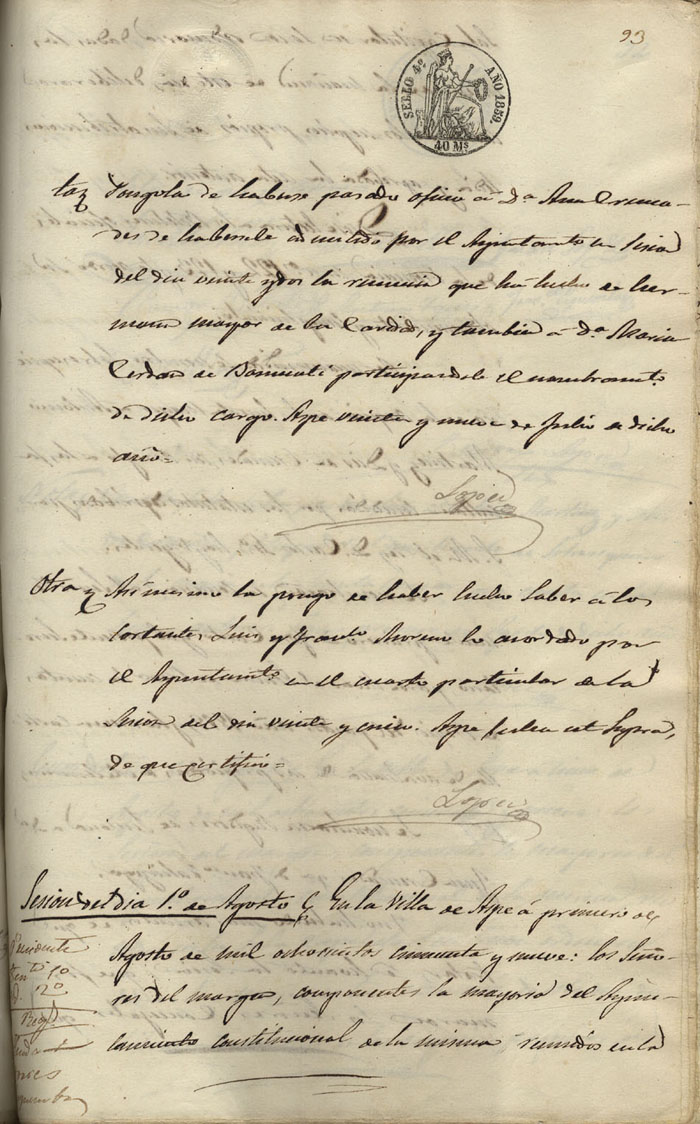 93
SELLO 4º AÑO 1859.
40 Ms
Pongola de haberse pasado oficio á Dª Ana
de haberle admitido por el Ayuntamto en Sesion
del dia veinte y dos la renuncia que ha hecho de her-
mana mayor de la Caridad, y tambien á Dª Maria
Cerdan de participandole el nombramto
de dicho cargo. Aspe veinte y nueve de Julio de dicho
año=
Lopez
Otra Asimismo la pongo de haber hecho saber á los
Cortantes Luis y Franco Moreno lo acordado por
el Ayuntamto en el cuarto particular de la
Sesion del dia veinte y cinco. Aspe fecha ut Supra,
de que certifico=
Lopez
Sesion del dia 1º de Agosto En la Villa de Aspe á primero de
Agosto de mil ochocientos cincuenta y nueve: los Seño-
res del margen, componentes la mayoria del Ayun-
tamiento constitucional de la misma reunidos en la
1º
2º